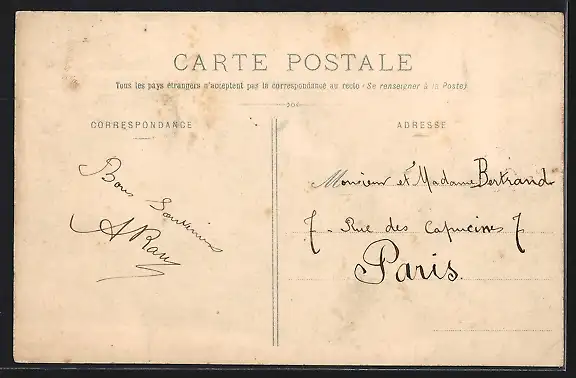 CARTE POSTALE
Tous les pays étrangers n'acceptent pas la correspondance au recto (Se renseigner à la Poste)
CORRESPONDANCE
ADRESSE
Bons Souvenirs
A
Monsieur et Madame Bertrand
7 - Rue des Capucines 7
Paris.